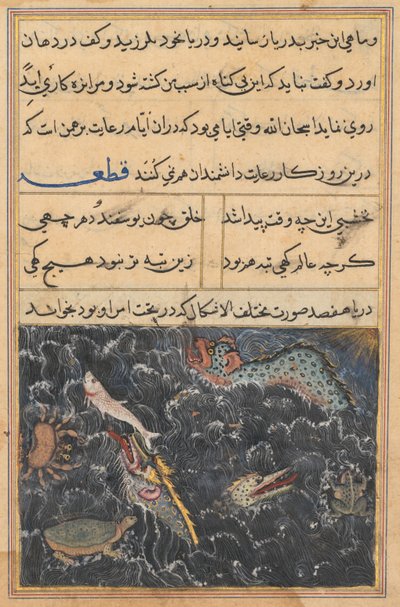 و ماهی این خبر بدریا رسانید و دریا بخود بلرزید و کف در دهان
اورد و کفت نباید که این بی کناه از سبب من کشته شود و مرا بزه کاری
روی نماید سبحان الله وقتی ایامی بود که دران ایام رعایت برهمن است که
درین روزکار رعایت دانشمندان هم نمی کنند قطعه
نخشبی این چه وقت پیدا شد خلق چون یوسفند و دهر چهی
کرچه عالم کهی تبه هم بود زین تبه تر نبود هیچ کهی
دریا هفصد صورت مختلف الاشکال که در تحت امر او بود بخواند